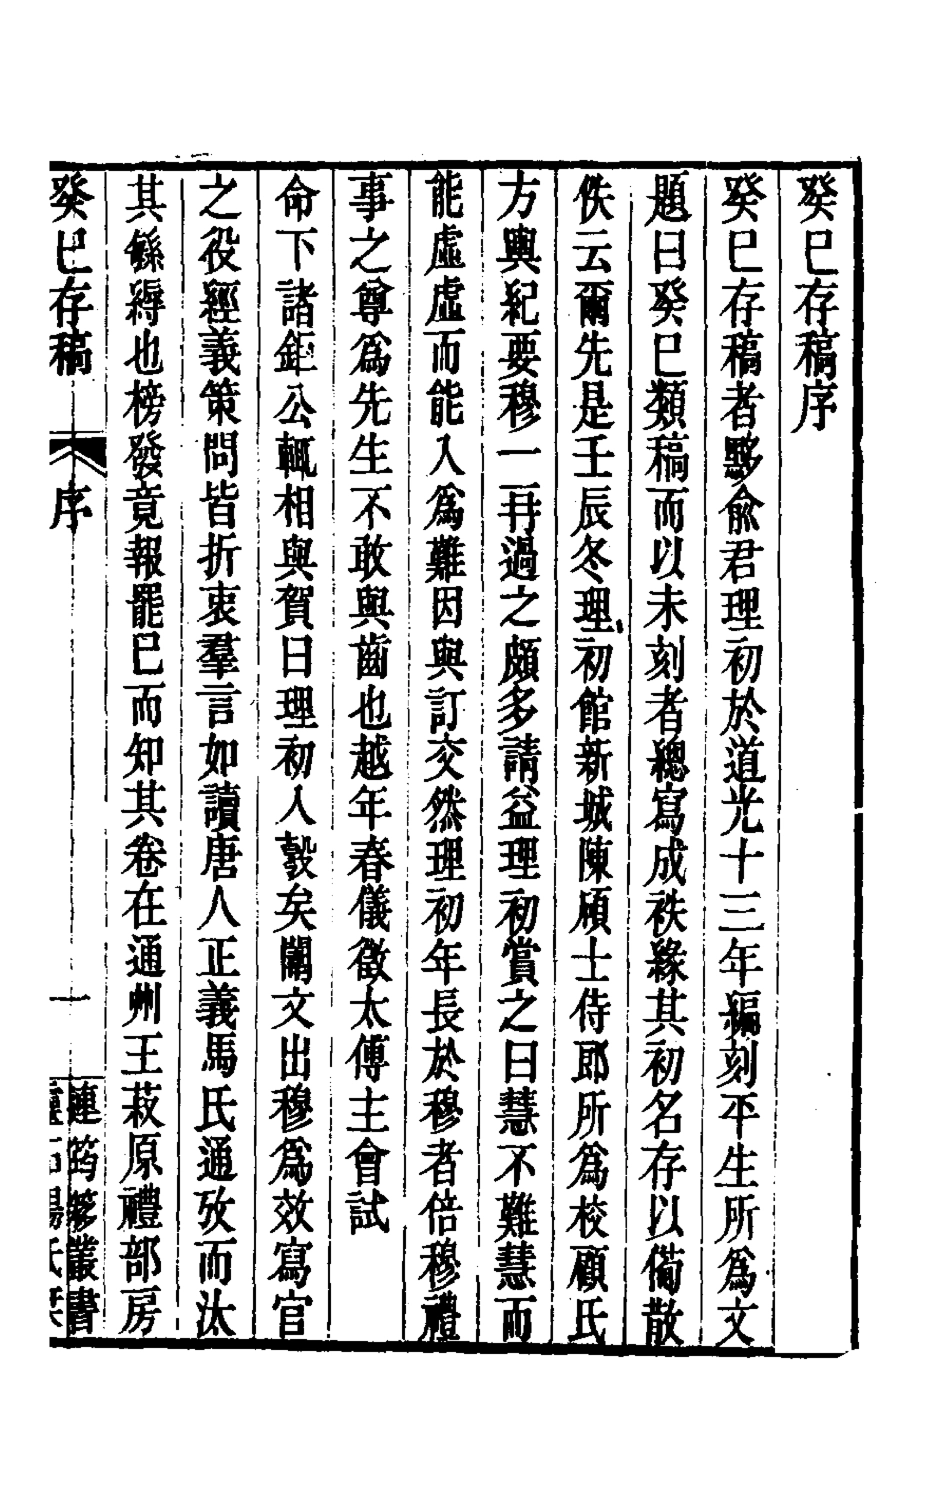 癸巳存稿序
癸巳存稿者黟俞君理初於道光十三年編刻平生所爲文
題曰癸巳類稿而以未刻者總寫成袟緣其初名存以僃散
佚云爾先是壬辰冬理初館新城陳碩士侍郎所爲校顧氏
方輿紀要穆一再過之頗多請益理初賞之曰慧不難慧而
能虛虛而能入爲難因與訂交然理初年長於穆者倍穆禮
事之尊爲先生不敢與齒也越年春儀徵太傅主會試
命下諸鉅公輒相與賀曰理初入彀矣闈文出穆爲效寫官
之役經義策問皆折衷羣言如讀唐人正義馬氏通攷而汰
其繇縟也榜發竟報罷巳而知其卷在通州王菽原禮部房
癸巳存稿
序
一
連筠簃叢書
靈石楊氏栞